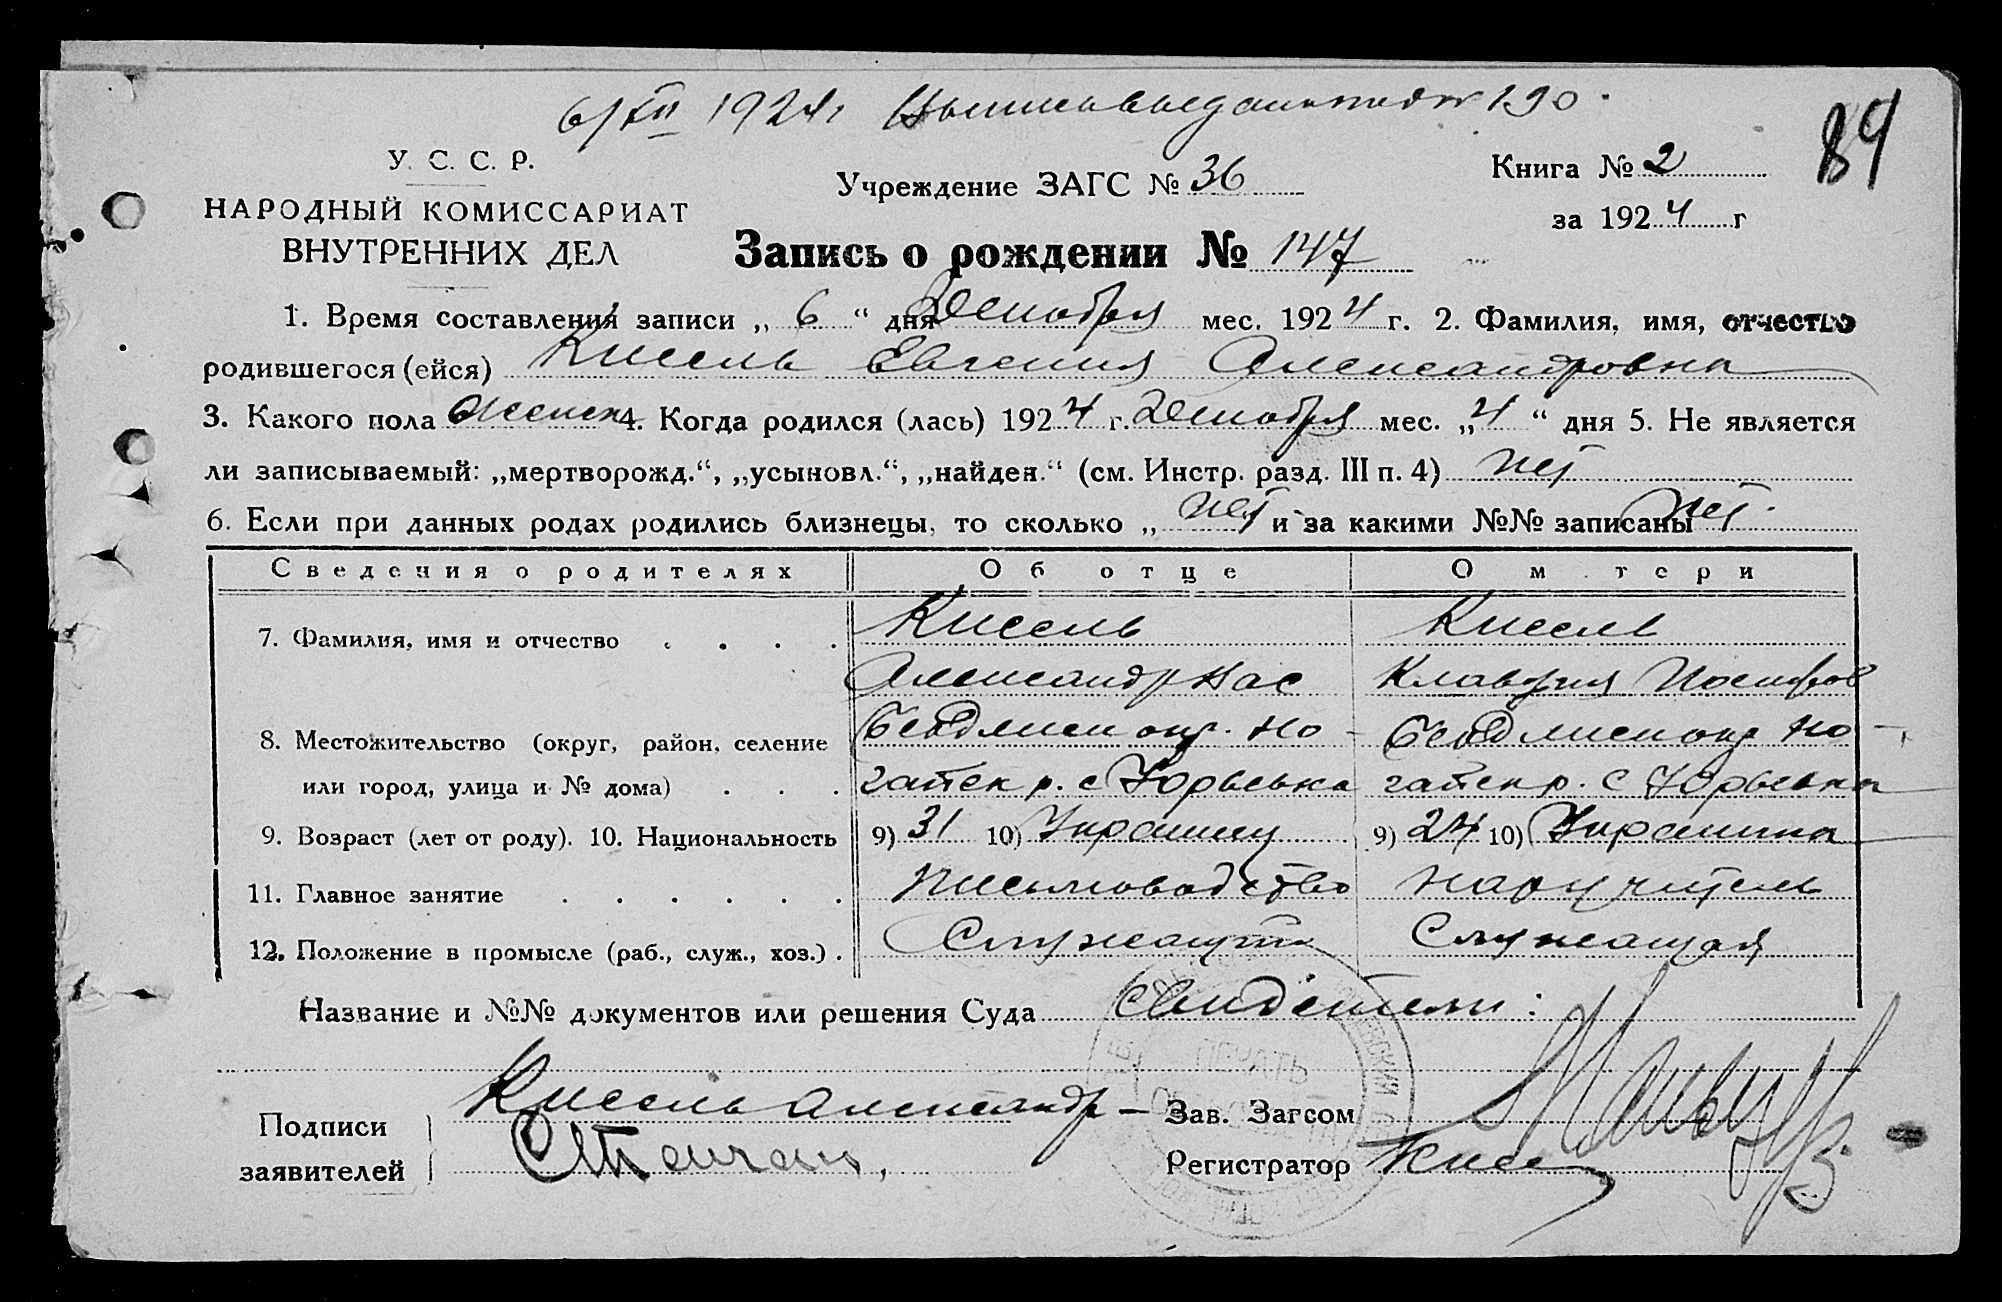 6/XII 1924г. Выпись выдана под № 190.
89
У. С. С. Р.
НАРОДНЫЙ КОМИССАРИАТ
ВНУТРЕННИХ ДЕЛ
Учреждение ЗАГС № 36
Книга № 2
за 1924 г
Запись о рождении № 147
1. Время составления записи „ 6 “ дня Декабря мес. 1924 г. 2. Фамилия, имя, отчество
родившегося (ейся) Кисель Евгения Александровна
3. Какого пола женск 4. Когда родился (лась) 1924 г. Декабря мес. „ 4 “ дня 5. Не является
ли записываемый: „мертворожд.“, „усыновл.“, „найден.“ (см. Инстр. разд. III п. 4) нет
6. Если при данных родах родились близнецы, то сколько „ нет и за какими №№ записаны нет.
Сведения о родителях Об отце О м тери
7. Фамилия, имя и отчество . . . . Кисель Кисель
Александр Вас Клавдия Иосифов
8. Местожительство (округ, район, селение Бердянск окр. Но- Бердянск окр Но-
или город, улица и № дома) . . . гайск р. с Юрьевка гайск р. с Юрьевка
9. Возраст (лет от роду). 10. Национальность 9) 31 10) Украинец 9) 24 10) Украинка
11. Главное занятие . . . . . . письмоводство нар учитель
12. Положение в промысле (раб., служ., хоз.) . Служащий Служащая
Название и №№ документов или решения Суда Свидетели:
Подписи
заявителей
Кисель Александр —
Зав. Загсом
Регистратор
ПЕЧАТЬ